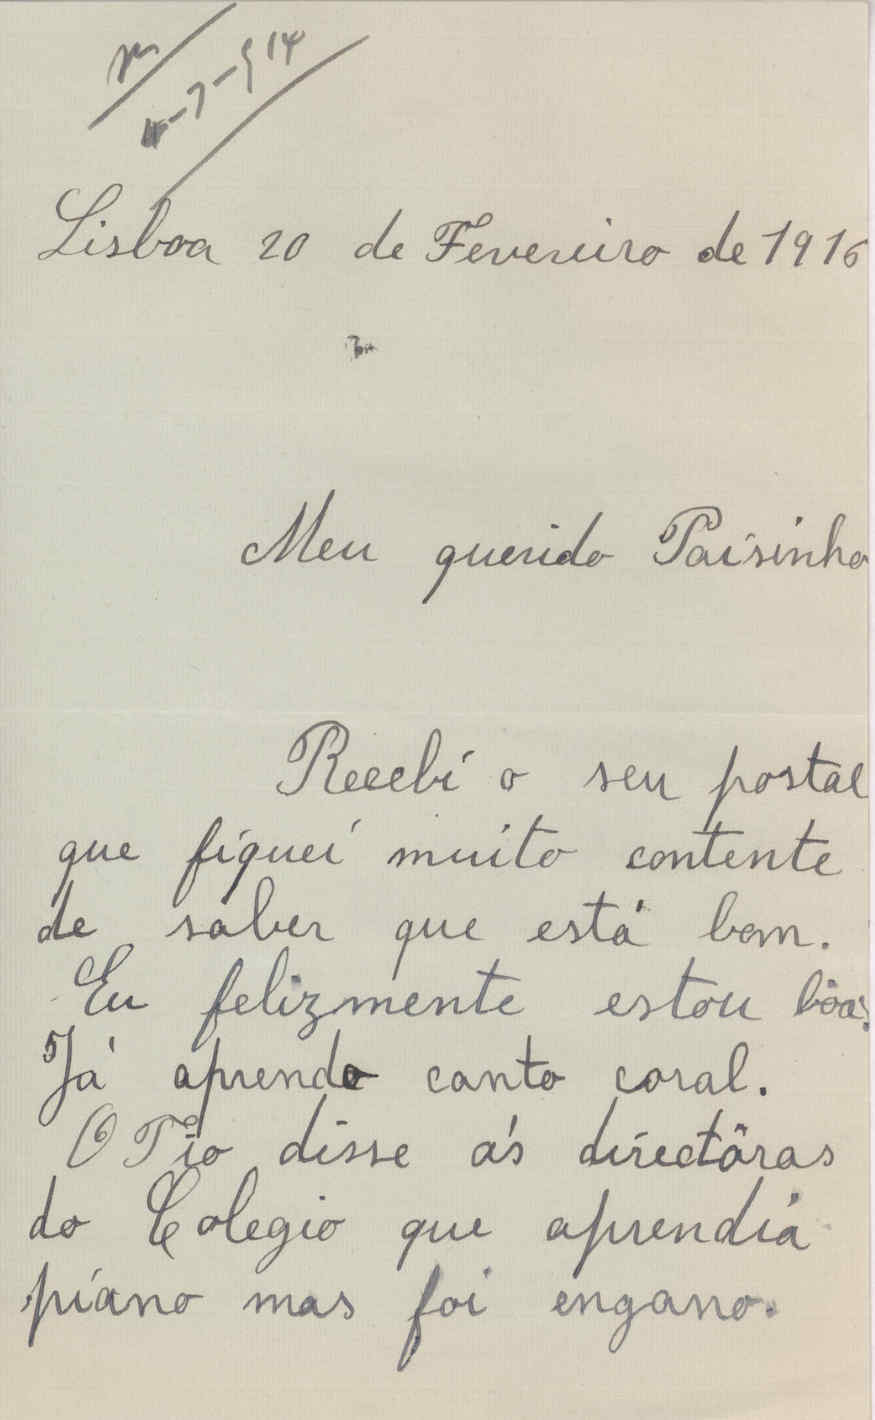 Lisboa 20 de Fevereiro de 1916
Meu querido Paisinho
Recebi o seu postal
que fiquei muito contente
de saber que está bem.
Eu felizmente estou bôa.
Já aprendo canto coral.
O Tio disse ás directôras
do Colegio que aprendia
piano mas foi engano.